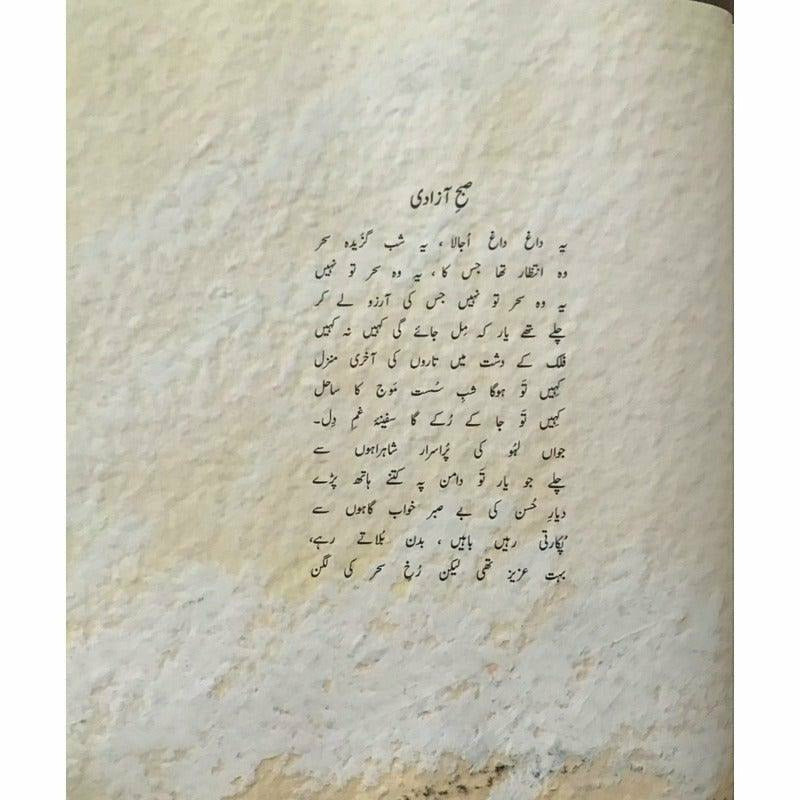 صبحِ آزادی
یہ داغ داغ اُجالا، یہ شب گزیدہ سحر
وہ انتظار تھا جس کا، یہ وہ سحر تو نہیں
یہ وہ سحر تو نہیں جس کی آرزو لے کر
چلے تھے یار کہ مِل جائے گی کہیں نہ کہیں
فلک کے دشت میں تاروں کی آخری منزل
کہیں تَو ہوگا شبِ سُست مَوج کا ساحل
کہیں تَو جا کے رُکے گا سفینۂ غمِ دِل۔
جواں لہُو کی پُراسرار شاہراہوں سے
چلے جو یار تَو دامن پہ کتنے ہاتھ پڑے
دیارِ حُسن کی بے صبر خواب گاہوں سے
پُکارتی رہیں باہیں، بدن بُلاتے رہے،
بہت عزیز تھی لیکن رُخِ سحر کی لگن